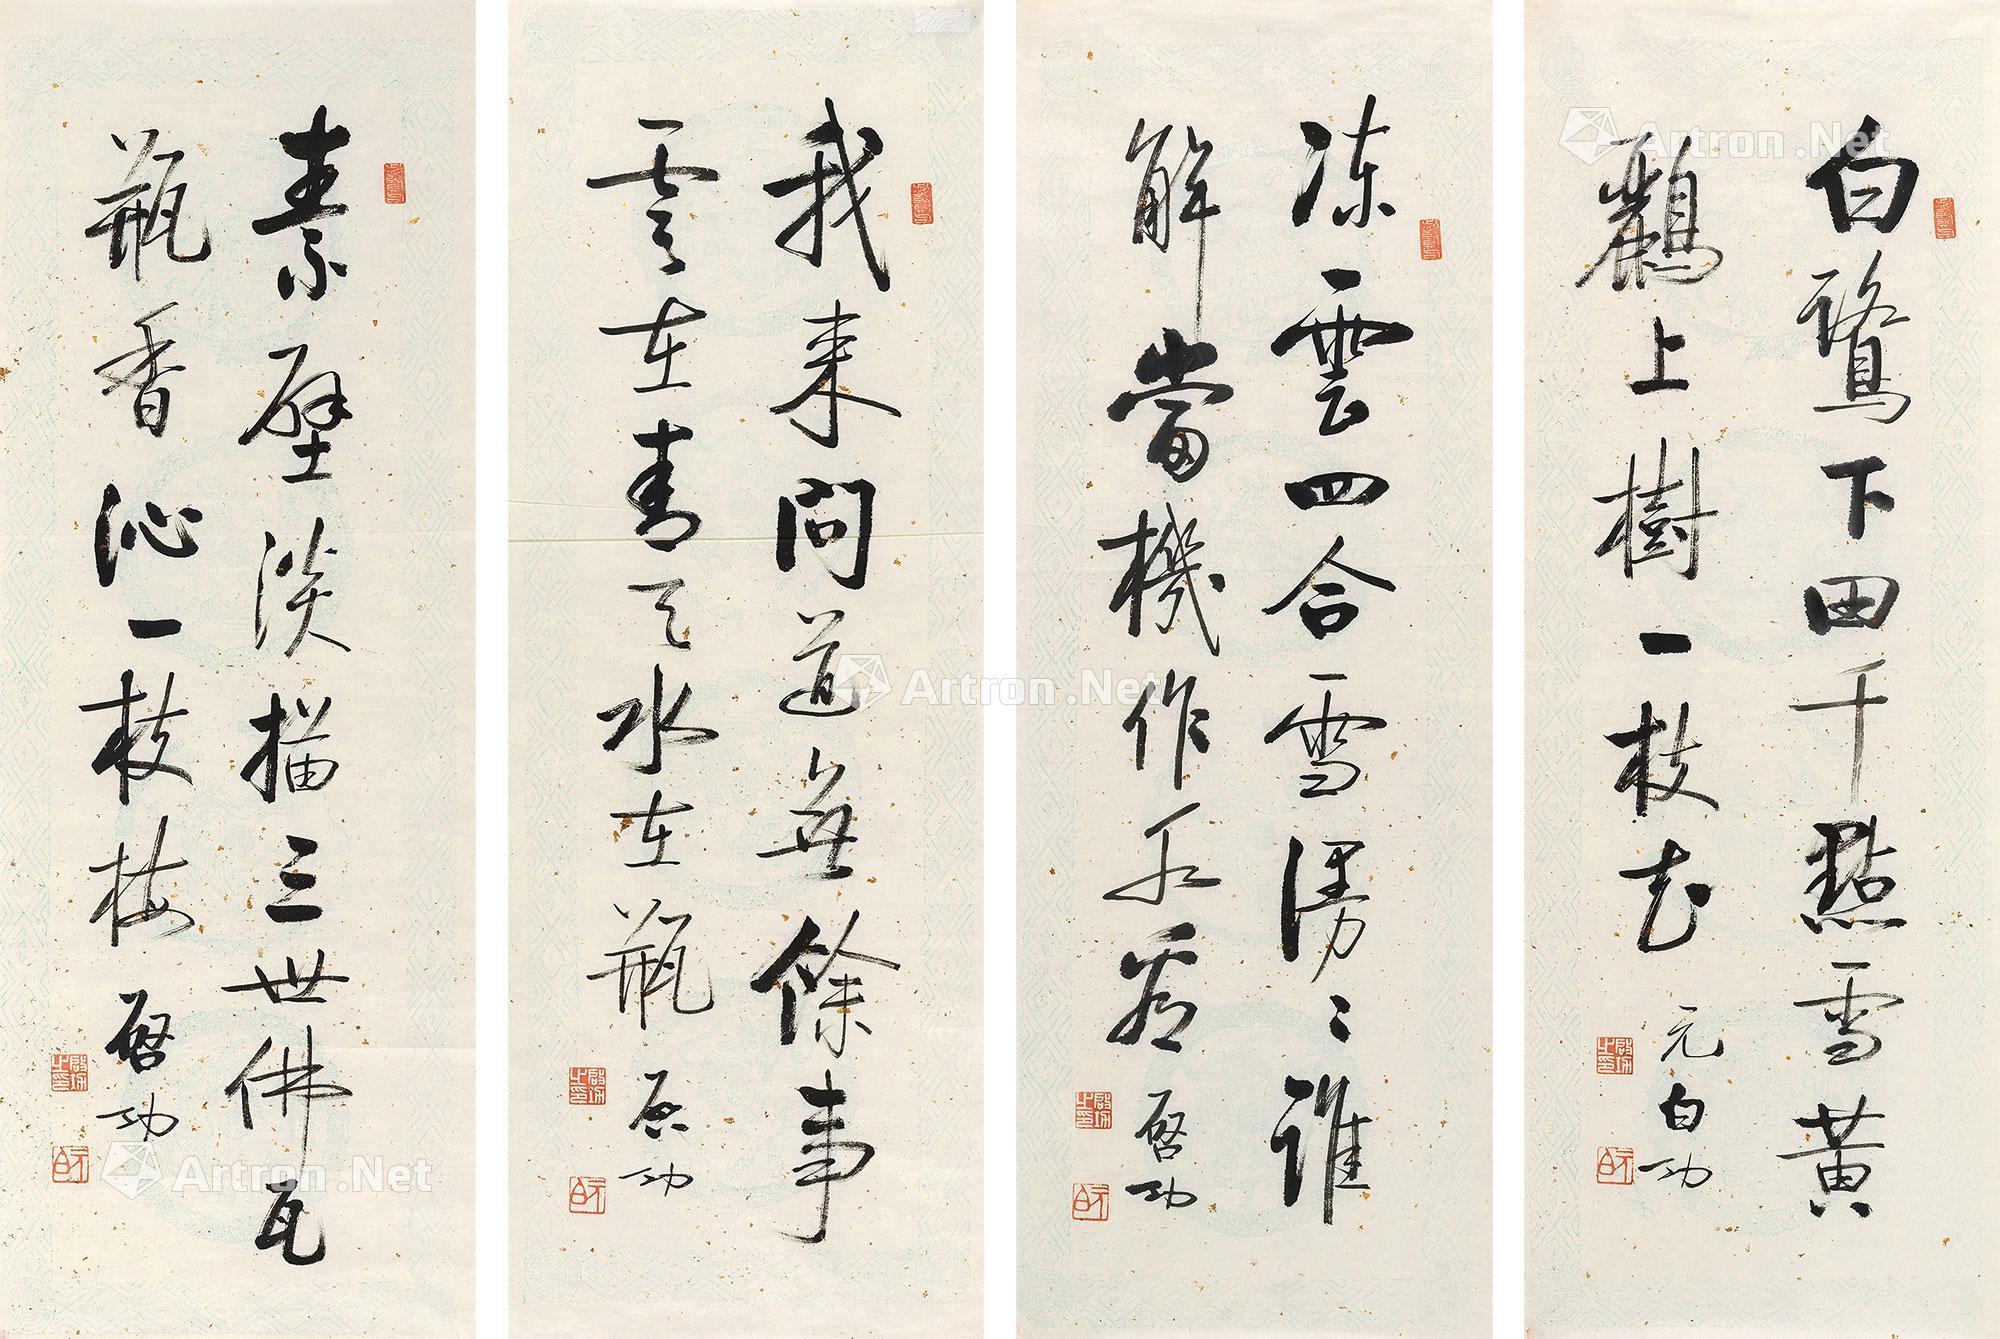 白鷺下田千點雪黃
鸝上樹一枝花
元白功
凍雲四合雪漫々誰
解當機作水看
啓功
我来問道無餘事
雲在青天水在瓶
啓功
素壁淡描三世佛瓦
瓶香沁一枝梅
啓功
啟功之印
元白
Artron.Net
Artron.Net
Artron.Net